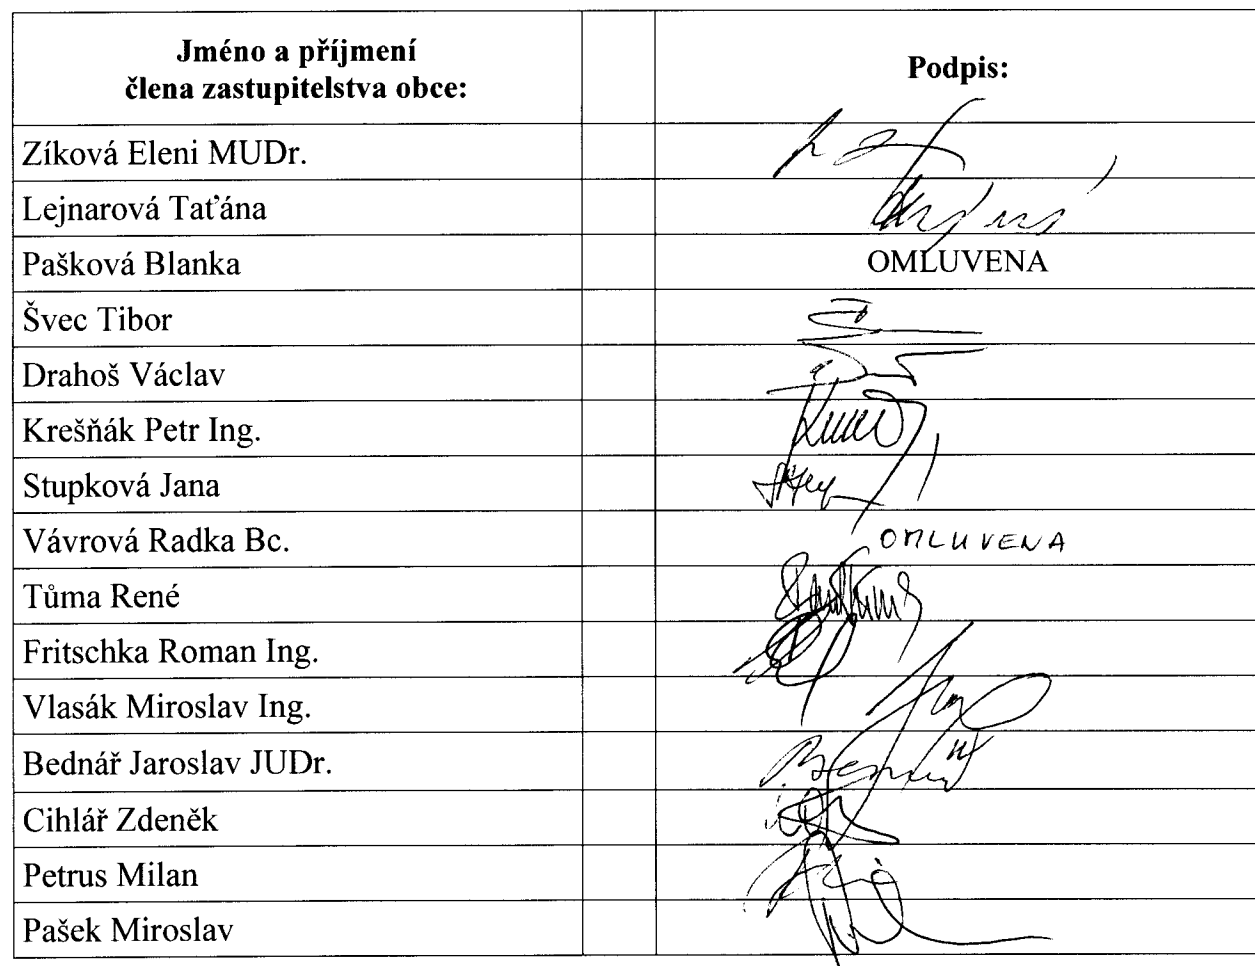 Jméno a příjmení
člena zastupitelstva obce:
Podpis:
Zíková Eleni MUDr.
Lejnarová Taťána
Pašková Blanka
OMLUVENA
Švec Tibor
Drahoš Václav
Krešňák Petr Ing.
Stupková Jana
Vávrová Radka Bc.
OMLUVENA
Tůma René
Fritschka Roman Ing.
Vlasák Miroslav Ing.
Bednář Jaroslav JUDr.
Cihlář Zdeněk
Petrus Milan
Pašek Miroslav